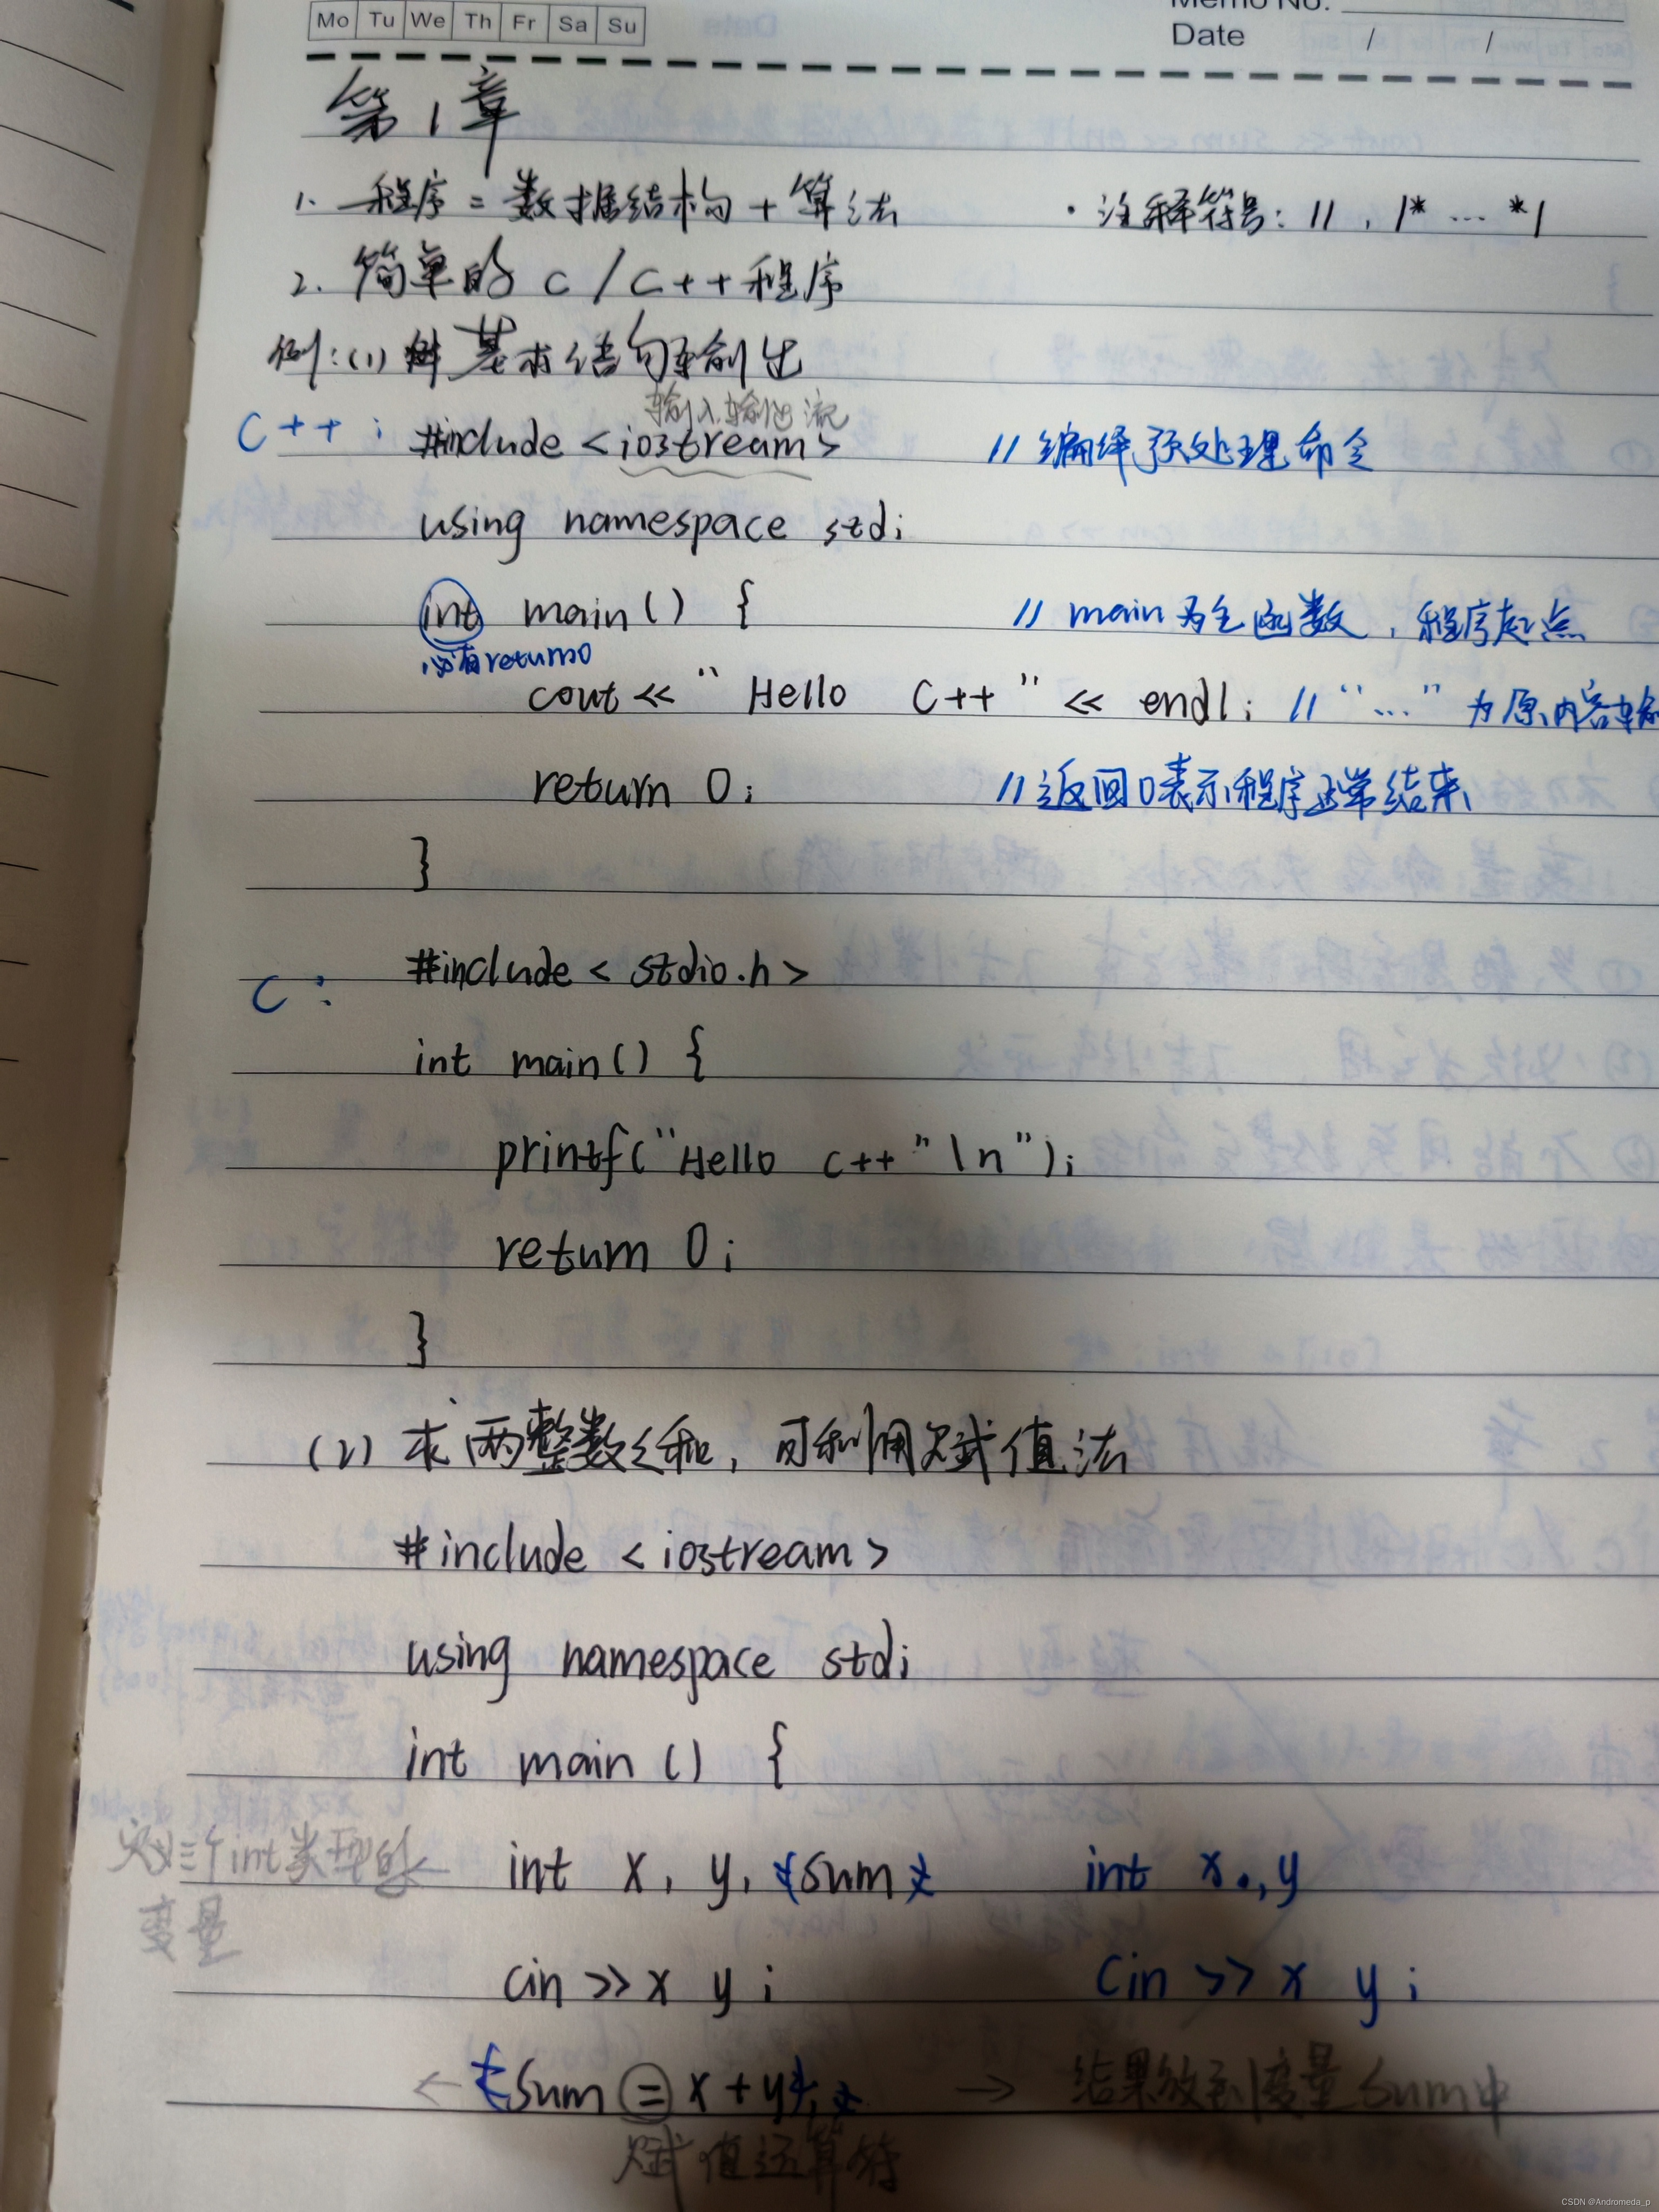 Mo Tu We Th Fr Sa Su
Memo No.
Date / /
第1章
1. 程序 = 数据结构 + 算法 · 注释符号: // , /* ... */
2. 简单的 C / C++ 程序
例:(1) 某求结句输出
输入输出流
C++: #include <iostream> // 编译预处理命令
using namespace std;
int main() { // main为主函数, 程序起点
必有return 0
cout << " Hello C++ " << endl; // "..." 为原内容输
return 0; // 返回0表示程序正常结束
}
C: #include < stdio.h >
int main() {
printf("Hello c++ "\n");
return 0;
}
(2) 求两整数之和, 可利用赋值法
#include <iostream>
using namespace std;
int main () {
定义三个int类型的变量 ← int x, y, sum int x, y
cin >> x y ; cin >> x y ;
← sum = x + y; → 结果放到变量sum中
赋值运算符
CSDN @Andromeda_p